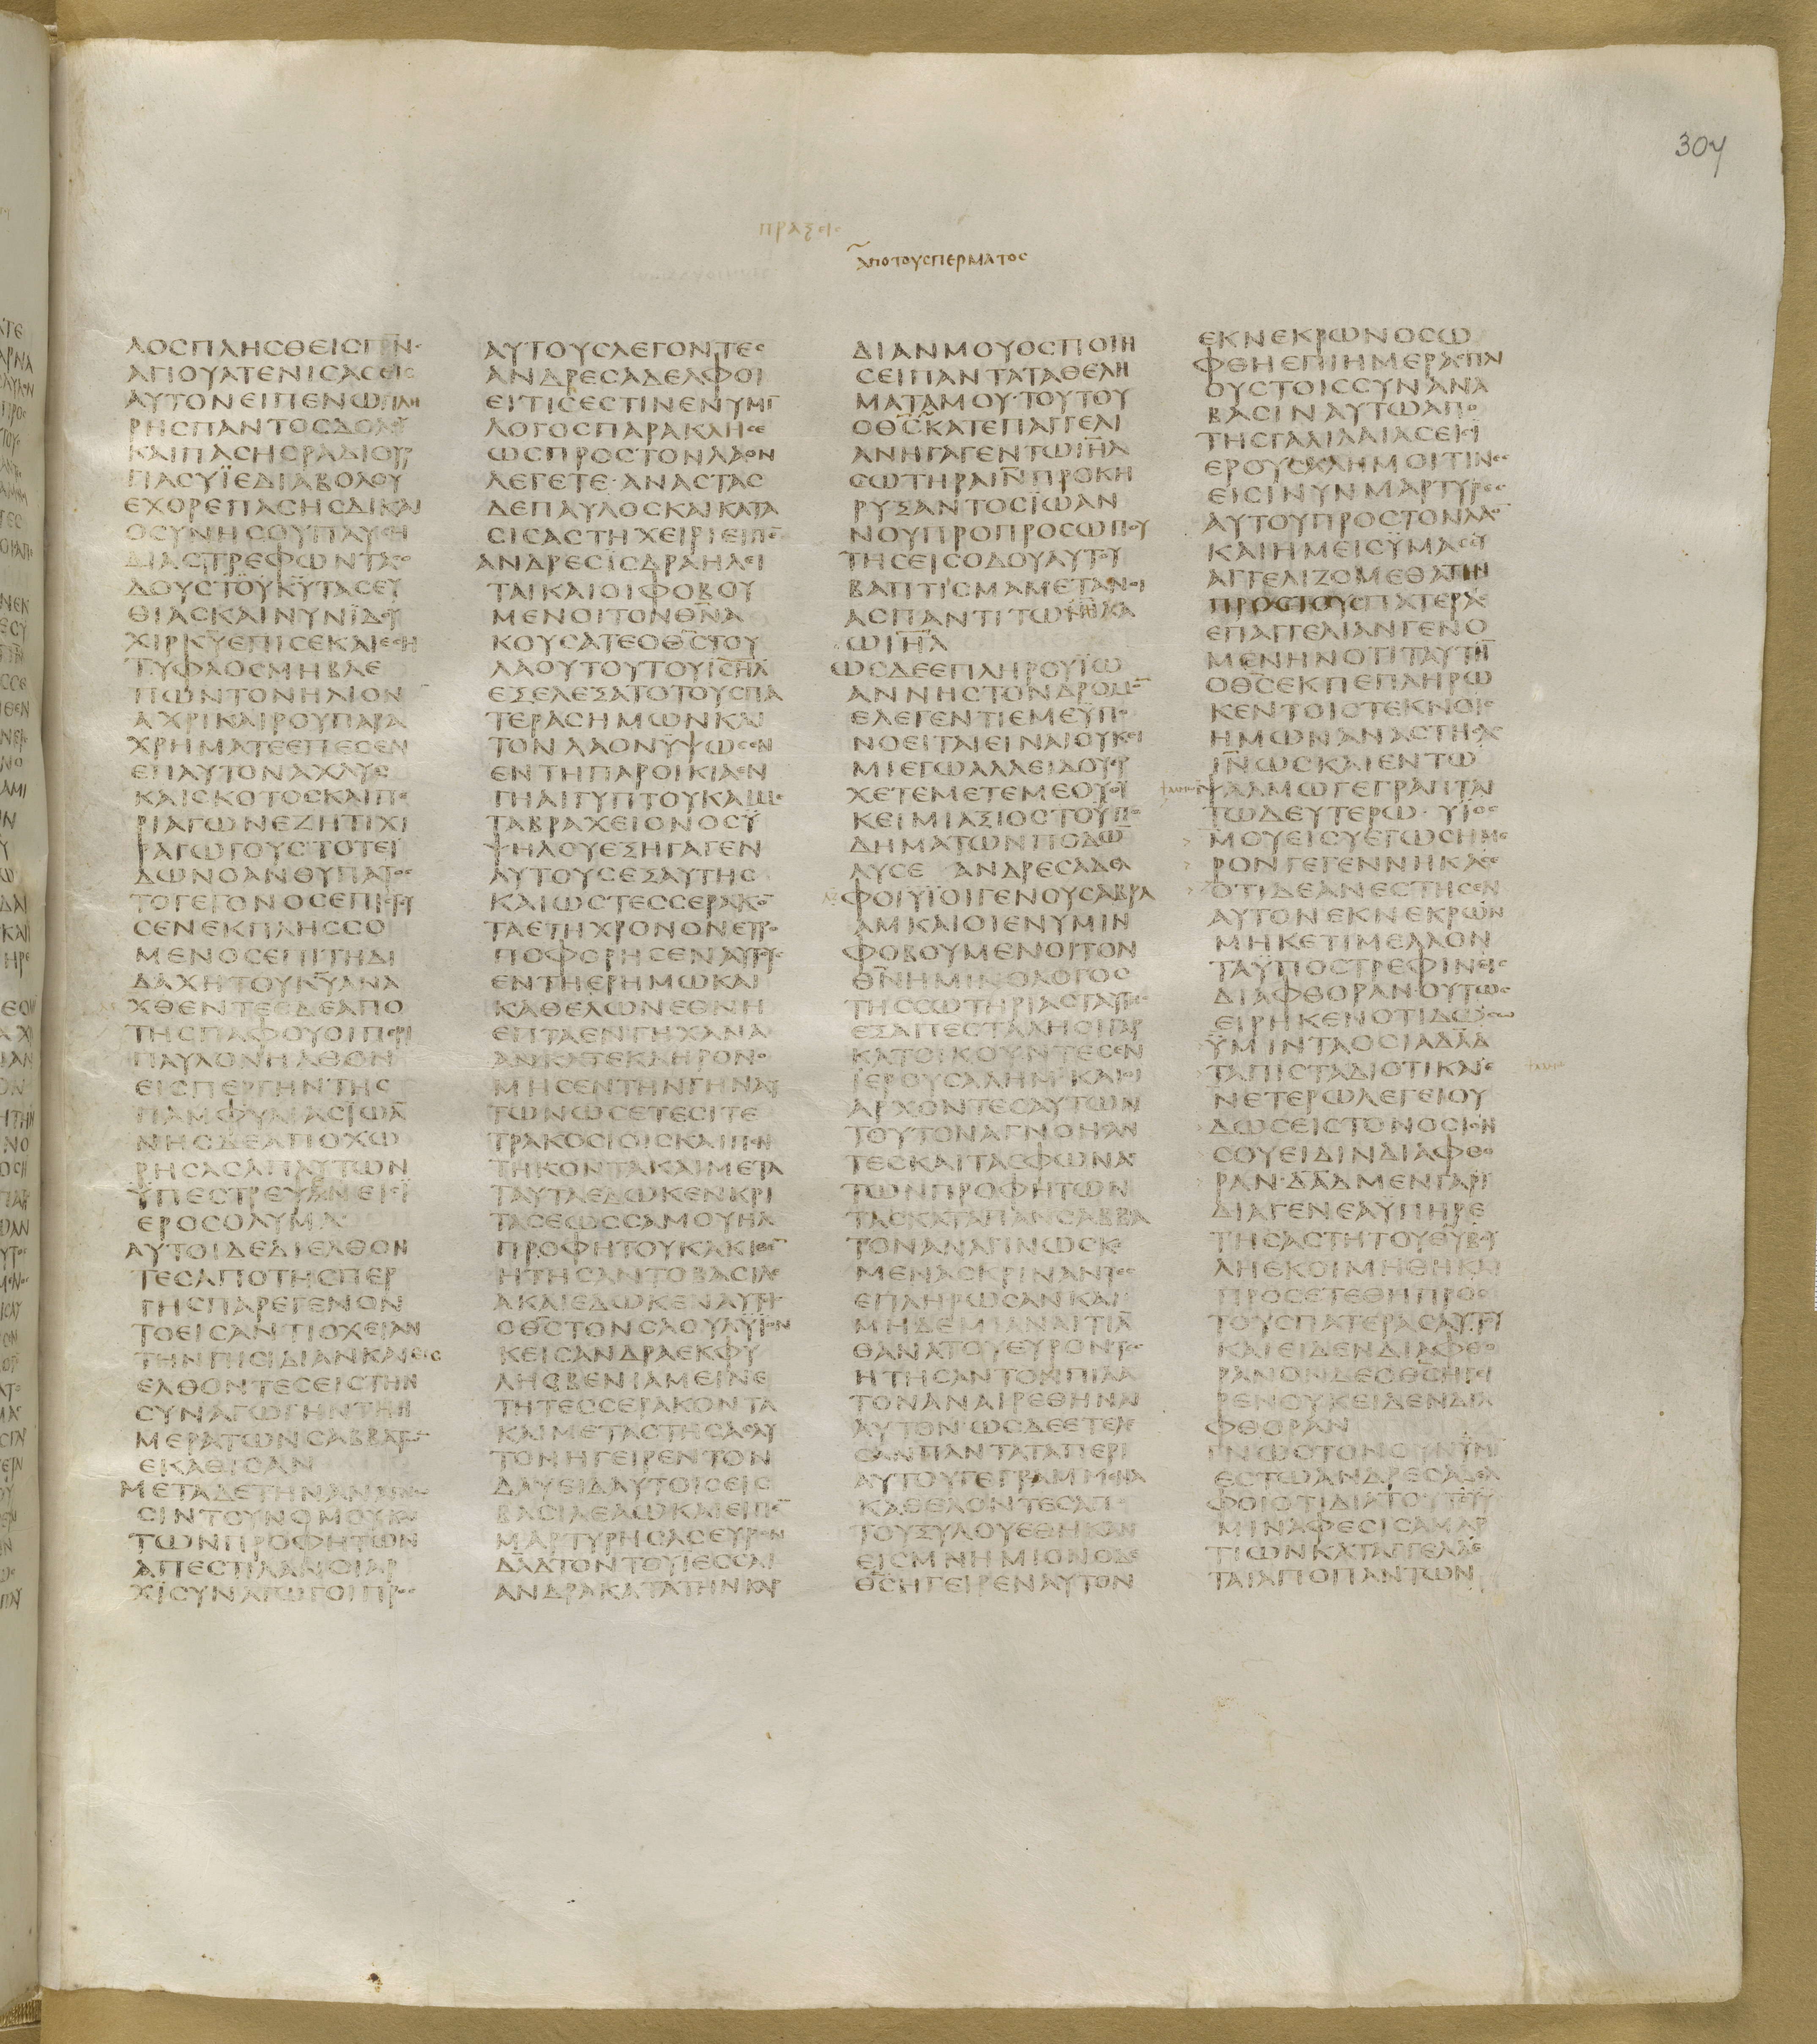 307
ΠΡΑΞΕΙϹ
ΑΠΟΤΟΥϹΠΕΡΜΑΤΟϹ
ΛΟϹΠΛΗϹΘΕΙϹΠΝϹ
ΑΓΙΟΥΑΤΕΝΙϹΑϹΕΙϹ
ΑΥΤΟΝΕΙΠΕΝΩΠΛΗ
ΡΗϹΠΑΝΤΟϹΔΟΛΟΥ
ΚΑΙΠΑϹΗϹΡΑΔΙΟΥΡ
ΓΙΑϹΥΪΕΔΙΑΒΟΛΟΥ
ΕΧΘΡΕΠΑϹΗϹΔΙΚΑΙ
ΟϹΥΝΗϹΟΥΠΑΥϹΗ
ΔΙΑϹΤΡΕΦΩΝΤΑϹΟ
ΔΟΥϹΤΟΥΚΥΤΑϹΕΥ
ΘΙΑϹΚΑΙΝΥΝΪΔΟΥ
ΧΙΡΚΥΕΠΙϹΕΚΑΙΕϹΗ
ΤΥΦΛΟϹΜΗΒΛΕ
ΠΩΝΤΟΝΗΛΙΟΝ
ΑΧΡΙΚΑΙΡΟΥΠΑΡΑ
ΧΡΗΜΑΤΕΕΠΕϹΕΝ
ΕΠΑΥΤΟΝΑΧΛΥϹ
ΚΑΙϹΚΟΤΟϹΚΑΙΠΕ
ΡΙΑΓΩΝΕΖΗΤΙΧΙ
ΡΑΓΩΓΟΥϹΤΟΤΕΪ
ΔΩΝΟΑΝΘΥΠΑΤΟϹ
ΤΟΓΕΓΟΝΟϹΕΠΙϹΤΕΥ
ϹΕΝΕΚΠΛΗϹϹΟ
ΜΕΝΟϹΕΠΙΤΗΔΙ
ΔΑΧΗΤΟΥΚΥΑΝΑ
ΧΘΕΝΤΕϹΔΕΑΠΟ
ΤΗϹΠΑΦΟΥΟΙΠΕΡΙ
ΠΑΥΛΟΝΗΛΘΟΝ
ΕΙϹΠΕΡΓΗΝΤΗϹ
ΠΑΜΦΥΛΙΑϹΪΩΑ
ΝΗϹΔΕΑΠΟΧΩ
ΡΗϹΑϹΑΠΑΥΤΩΝ
ΫΠΕϹΤΡΕΨΑΝΕΙϹΪ
ΕΡΟϹΟΛΥΜΑ
ΑΥΤΟΙΔΕΔΙΕΛΘΟΝ
ΤΕϹΑΠΟΤΗϹΠΕΡ
ΓΗϹΠΑΡΕΓΕΝΟΝ
ΤΟΕΙϹΑΝΤΙΟΧΕΙΑΝ
ΤΗΝΠΙϹΙΔΙΑΝΚΑΙΕΙϹ
ΕΛΘΟΝΤΕϹΕΙϹΤΗΝ
ϹΥΝΑΓΩΓΗΝΤΗΗ
ΜΕΡΑΤΩΝϹΑΒΒΑΤΩ
ΕΚΑΘΙϹΑΝ
ΜΕΤΑΔΕΤΗΝΑΝΑΓΝΩ
ϹΙΝΤΟΥΝΟΜΟΥΚΑΙ
ΤΩΝΠΡΟΦΗΤΩΝ
ΑΠΕϹΤΙΛΑΝΟΙΑΡ
ΧΙϹΥΝΑΓΩΓΟΙΠΡΟϹ
ΑΥΤΟΥϹΛΕΓΟΝΤΕϹ
ΑΝΔΡΕϹΑΔΕΛΦΟΙ
ΕΙΤΙϹΕϹΤΙΝΕΝΥΜΙ
ΛΟΓΟϹΠΑΡΑΚΛΗϹΕ
ΩϹΠΡΟϹΤΟΝΛΑΟΝ
ΛΕΓΕΤΕ·ΑΝΑϹΤΑϹ
ΔΕΠΑΥΛΟϹΚΑΙΚΑΤΑ
ϹΙϹΑϹΤΗΧΕΙΡΙΕΙΠΕ
ΑΝΔΡΕϹΙϹΔΡΑΗΛΕΙ
ΤΑΙΚΑΙΟΙΦΟΒΟΥ
ΜΕΝΟΙΤΟΝΘΝΑ
ΚΟΥϹΑΤΕΟΘϹΤΟΥ
ΛΑΟΥΤΟΥΤΟΥΙϹΗΛ
ΕΞΕΛΕΞΑΤΟΤΟΥϹΠΑ
ΤΕΡΑϹΗΜΩΝΚΑΙ
ΤΟΝΛΑΟΝΥΨΩϹΕΝ
ΕΝΤΗΠΑΡΟΙΚΙΑΕΝ
ΓΗΑΙΓΥΠΤΟΥΚΑΙΜΕ
ΤΑΒΡΑΧΕΙΟΝΟϹΫ
ΨΗΛΟΥΕΞΗΓΑΓΕΝ
ΑΥΤΟΥϹΕΞΑΥΤΗϹ
ΚΑΙΩϹΤΕϹϹΕΡΑΚΟ
ΤΑΕΤΗΧΡΟΝΟΝΕΤΡΟ
ΠΟΦΟΡΗϹΕΝΑΥΤΟΥϹ
ΕΝΤΗΕΡΗΜΩΚΑΙ
ΚΑΘΕΛΩΝΕΘΝΗ
ΕΠΤΑΕΝΓΗΧΑΝΑ
ΑΝΚΑΤΕΚΛΗΡΟΝΟ
ΜΗϹΕΝΤΗΝΓΗΝΑΥ
ΤΩΝΩϹΕΤΕϹΙΤΕ
ΤΡΑΚΟϹΙΟΙϹΚΑΙΠΕΝ
ΤΗΚΟΝΤΑΚΑΙΜΕΤΑ
ΤΑΥΤΑΕΔΩΚΕΝΚΡΙ
ΤΑϹΕΩϹϹΑΜΟΥΗΛ
ΠΡΟΦΗΤΟΥΚΑΚΙΘΕ
ΗΤΗϹΑΝΤΟΒΑϹΙΛΕ
ΑΚΑΙΕΔΩΚΕΝΑΥΤΟΙϹ
ΟΘϹΤΟΝϹΑΟΥΛΥΪΟΝ
ΚΕΙϹΑΝΔΡΑΕΚΦΥ
ΛΗϹΒΕΝΙΑΜΕΙΝΕ
ΤΗΤΕϹϹΕΡΑΚΟΝΤΑ
ΚΑΙΜΕΤΑϹΤΗϹΑϹΑΥ
ΤΟΝΗΓΕΙΡΕΝΤΟΝ
ΔΑΥΕΙΔΑΥΤΟΙϹΕΙϹ
ΒΑϹΙΛΕΑΩΚΑΙΕΙΠΕ
ΜΑΡΤΥΡΗϹΑϹΕΥΡΟΝ
ΔΑΔΤΟΝΤΟΥΙΕϹϹΑΙ
ΑΝΔΡΑΚΑΤΑΤΗΝΚΑΡ
ΔΙΑΝΜΟΥΟϹΠΟΙΗ
ϹΕΙΠΑΝΤΑΤΑΘΕΛΗ
ΜΑΤΑΜΟΥ·ΤΟΥΤΟΥ
ΟΘϹΚΑΤΕΠΑΓΓΕΛΙ
ΑΝΗΓΑΓΕΝΤΩΙΗΛ
ϹΩΤΗΡΑΙΝΠΡΟΚΗ
ΡΥΞΑΝΤΟϹΪΩΑΝ
ΝΟΥΠΡΟΠΡΟϹΩΠΟΥ
ΤΗϹΕΙϹΟΔΟΥΑΥΤΟΥ
ΒΑΠΤΙϹΜΑΜΕΤΑΝΟΙ
ΑϹΠΑΝΤΙΤΩΛΑ
ΩΙΗΛ
ΩϹΔΕΕΠΛΗΡΟΥΪΩ
ΑΝΝΗϹΤΟΝΔΡΟΜΟ
ΕΛΕΓΕΝΤΙΕΜΕΫΠΟ
ΝΟΕΙΤΑΙΕΙΝΑΙΟΥΚΕΙ
ΜΙΕΓΩΑΛΛΕΙΔΟΥΕΡ
ΧΕΤΕΜΕΤΕΜΕΟΥΟΥ
ΚΕΙΜΙΑΞΙΟϹΤΟΫΠΟ
ΔΗΜΑΤΩΝΠΟΔΩ
ΛΥϹΕ ΑΝΔΡΕϹΑΔΕΛ
ΦΟΙΥΪΟΙΓΕΝΟΥϹΑΒΡΑ
ΑΜΚΑΙΟΙΕΝΥΜΙΝ
ΦΟΒΟΥΜΕΝΟΙΤΟΝ
ΘΝΗΜΙΝΟΛΟΓΟϹ
ΤΗϹϹΩΤΗΡΙΑϹΤΑΥΤΗϹ
ΕΞΑΠΕϹΤΑΛΗΟΙΓΑΡ
ΚΑΤΟΙΚΟΥΝΤΕϹΕΝ
ΪΕΡΟΥϹΑΛΗΜ·ΚΑΙΟΙ
ΑΡΧΟΝΤΕϹΑΥΤΩΝ
ΤΟΥΤΟΝΑΓΝΟΗϹΑΝ
ΤΕϹΚΑΙΤΑϹΦΩΝΑϹ
ΤΩΝΠΡΟΦΗΤΩΝ
ΤΑϹΚΑΤΑΠΑΝϹΑΒΒΑ
ΤΟΝΑΝΑΓΙΝΩϹΚΟ
ΜΕΝΑϹΚΡΙΝΑΝΤΕϹ
ΕΠΛΗΡΩϹΑΝΚΑΙ
ΜΗΔΕΜΙΑΝΑΙΤΙΑ
ΘΑΝΑΤΟΥΕΥΡΟΝΤΕϹ
ΗΤΗϹΑΝΤΟΝΠΙΛΑ
ΤΟΝΑΝΑΙΡΕΘΗΝΑΙ
ΑΥΤΟΝ·ΩϹΔΕΕΤΕΛΕ
ϹΑΝΠΑΝΤΑΤΑΠΕΡΙ
ΑΥΤΟΥΓΕΓΡΑΜΜΕΝΑ
ΚΑΘΕΛΟΝΤΕϹΑΠΟ
ΤΟΥΞΥΛΟΥΕΘΗΚΑΝ
ΕΙϹΜΝΗΜΙΟΝΟΔΕ
ΘϹΗΓΕΙΡΕΝΑΥΤΟΝ
ΕΚΝΕΚΡΩΝΟϹΩ
ΦΘΗΕΠΙΗΜΕΡΑϹΠΛΙ
ΟΥϹΤΟΙϹϹΥΝΑΝΑ
ΒΑϹΙΝΑΥΤΩΑΠΟ
ΤΗϹΓΑΛΙΛΑΙΑϹΕΙϹΙ
ΕΡΟΥϹΑΛΗΜΟΙΤΙΝΕϹ
ΕΙϹΙΝΥΝΜΑΡΤΥΡΕϹ
ΑΥΤΟΥΠΡΟϹΤΟΝΛΑΟ
ΚΑΙΗΜΕΙϹΫΜΑϹΕΥ
ΑΓΓΕΛΙΖΟΜΕΘΑΤΗΝ
ΠΡΟϹΤΟΥϹΠΑΤΕΡΑϹ
ΕΠΑΓΓΕΛΙΑΝΓΕΝΟ
ΜΕΝΗΝΟΤΙΤΑΥΤΗ
ΟΘϹΕΚΠΕΠΛΗΡΩ
ΚΕΝΤΟΙϹΤΕΚΝΟΙϹ
ΗΜΩΝΑΝΑϹΤΗϹΑϹ
ΙΝΩϹΚΑΙΕΝΤΩ
ΨΑΛΜΩΓΕΓΡΑΠΤΑΙ
ΤΩΔΕΥΤΕΡΩ·ΥΪΟϹ
ΜΟΥΕΙϹΥΕΓΩϹΗΜΕ
ΡΟΝΓΕΓΕΝΝΗΚΑϹΕ
ΟΤΙΔΕΑΝΕϹΤΗϹΕΝ
ΑΥΤΟΝΕΚΝΕΚΡΩΝ
ΜΗΚΕΤΙΜΕΛΛΟΝ
ΤΑΫΠΟϹΤΡΕΦΙΝΕΙϹ
ΔΙΑΦΘΟΡΑΝ·ΟΥΤΩϹ
ΕΙΡΗΚΕΝΟΤΙΔΩϹΩ
ΫΜΙΝΤΑΟϹΙΑΔΑΔ
ΤΑΠΙϹΤΑΔΙΟΤΙΚΑΙΕ
ΝΕΤΕΡΩΛΕΓΕΙΟΥ
ΔΩϹΕΙϹΤΟΝΟϹΙΟΝ
ϹΟΥΕΙΔΙΝΔΙΑΦΘΟ
ΡΑΝ·ΔΑΔΜΕΝΓΑΡΙ
ΔΙΑΓΕΝΕΑΫΠΗΡΕ
ΤΗϹΑϹΤΗΤΟΥΘΥΒΟΥ
ΛΗΕΚΟΙΜΗΘΗΚΑΙ
ΠΡΟϹΕΤΕΘΗΠΡΟϹ
ΤΟΥϹΠΑΤΕΡΑϹΑΥΤΟΥ
ΚΑΙΕΙΔΕΝΔΙΑΦΘΟ
ΡΑΝΟΝΔΕΟΘϹΗΓΕΙ
ΡΕΝΟΥΚΕΙΔΕΝΔΙΑ
ΦΘΟΡΑΝ
ΓΝΩϹΤΟΝΟΥΝΫΜΙ
ΕϹΤΩΑΝΔΡΕϹΑΔΕΛ
ΦΟΙΟΤΙΔΙΑΤΟΥΤΟΥΫ
ΜΙΝΑΦΕϹΙϹΑΜΑΡ
ΤΙΩΝΚΑΤΑΓΓΕΛΛΕ
ΤΑΙΑΠΟΠΑΝΤΩΝ